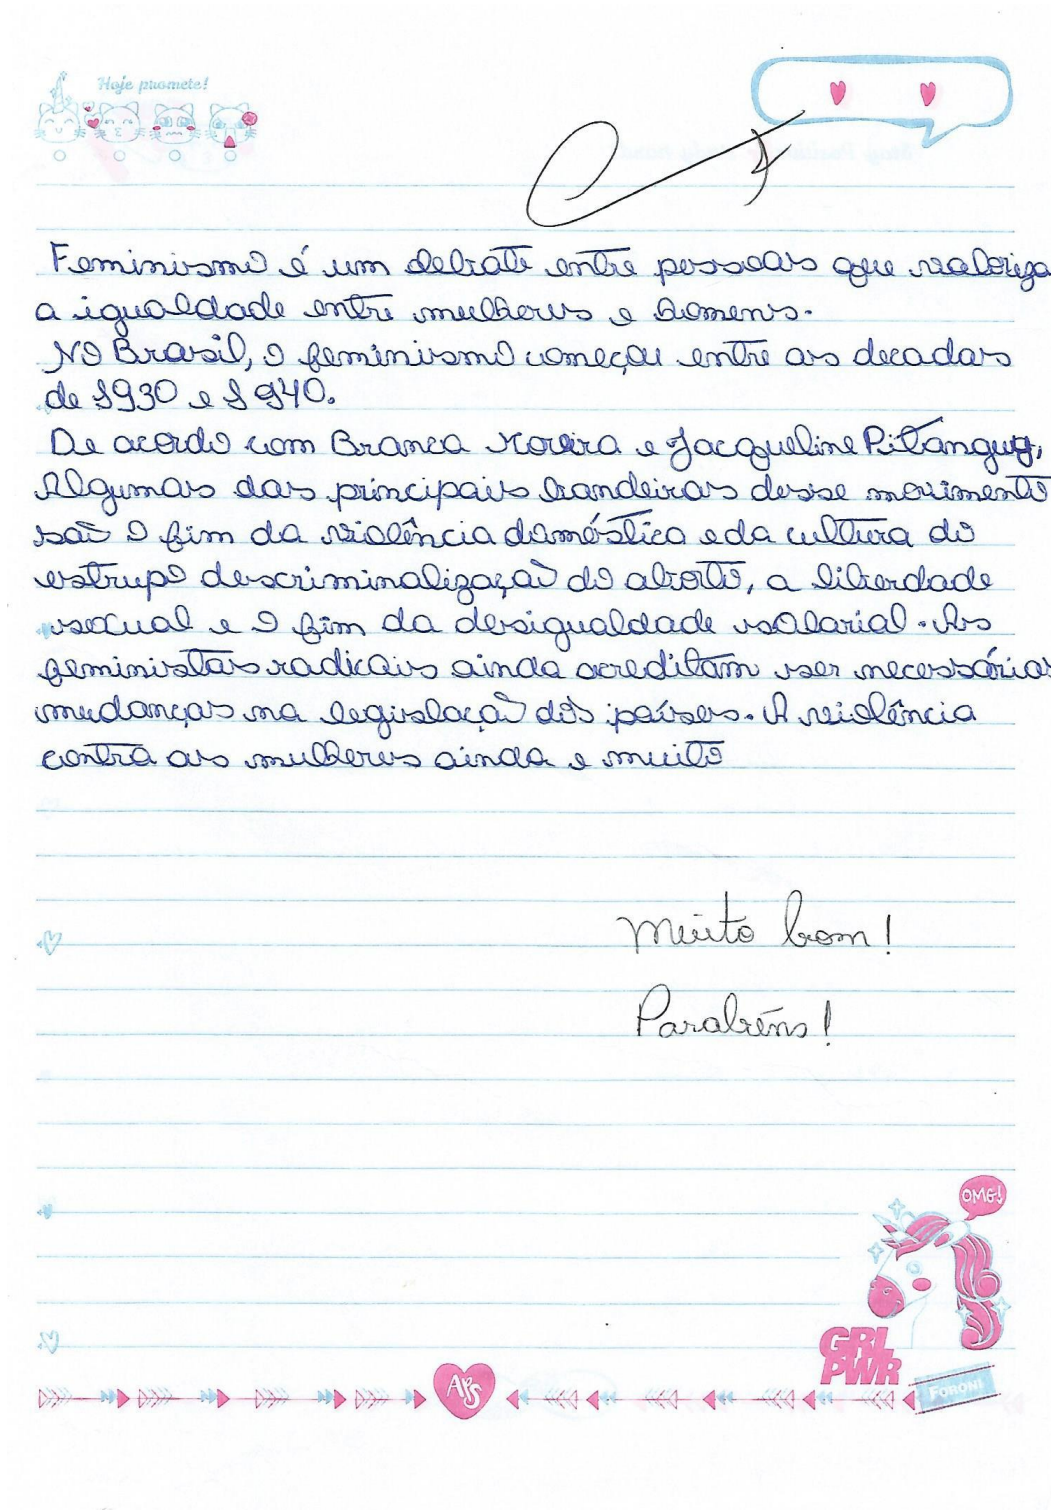 Hoje promete!
Feminismo é um debate entre pessoas que valoriza
a igualdade entre mulheres e homens.
No Brasil, o feminismo começou entre as decadas
de 1930 e 1940.
De acordo com Branca Moreira e Jacqueline Pitanguy,
Algumas das principais bandeiras desse movimento
são o fim da violência doméstica e da cultura do
estrupo descriminalização do aborto, a liberdade
sexual e o fim da desigualdade salarial. As
feministas radicais ainda acreditam ser necessárias
mudanças na legislação dos países. A violência
contra as mulheres ainda e muito
Muito bom!
Parabéns!
OMG!
GRL
PWR
FORONI